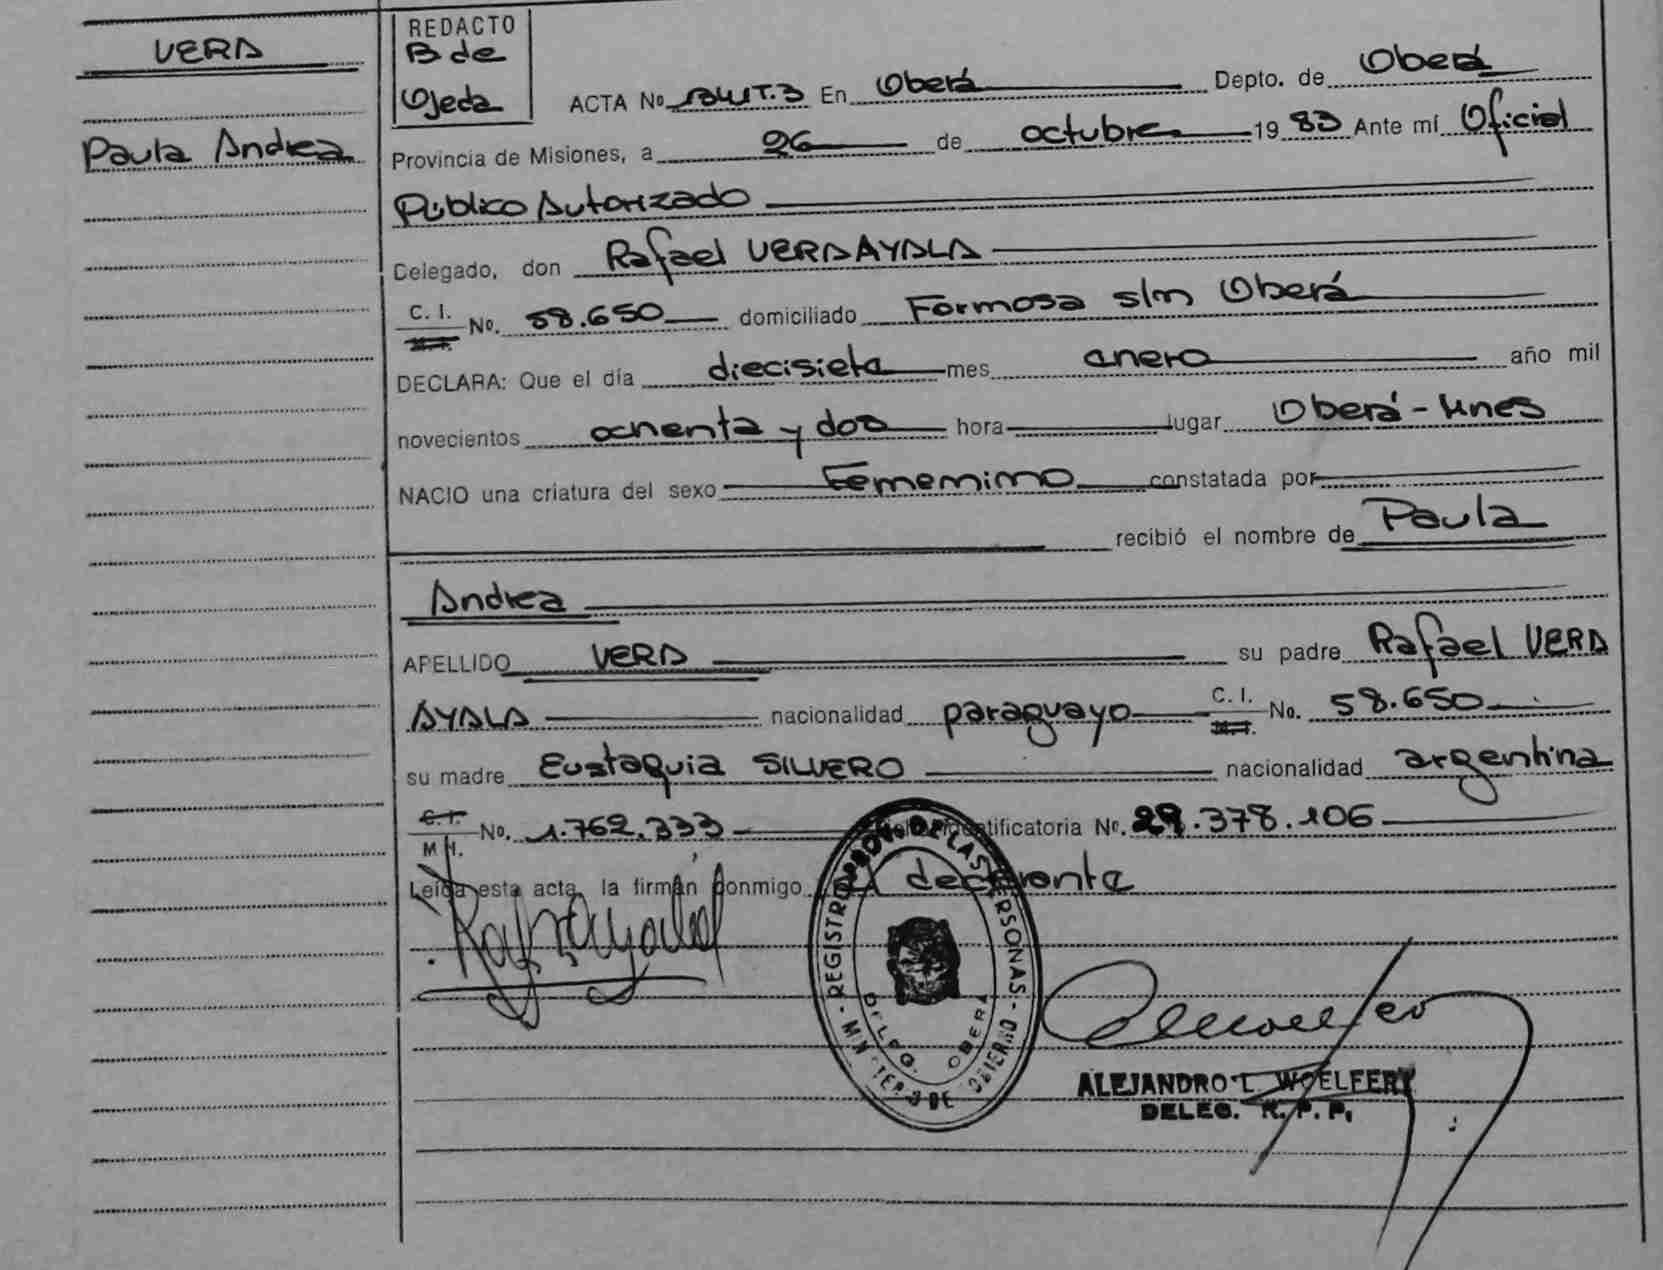 VERA
Paula Andrea
REDACTO
B de
Ojeda
ACTA No 34T.3 En Oberá Depto. de Oberá
Provincia de Misiones, a 26 de octubre 1983 Ante mí Oficial
Público Autorizado
Delegado, don Rafael VERA AYALA
C. I. No. 58.650 domiciliado Formosa s/n Oberá
DECLARA: Que el día diecisiete mes enero año mil
novecientos ochenta y dos hora lugar Oberá - Mnes
NACIO una criatura del sexo Femenino constatada por
recibió el nombre de Paula
Andrea
APELLIDO VERA su padre Rafael VERA
AYALA nacionalidad paraguayo C. I. No. 58.650
su madre Eustaquia SILVERO nacionalidad argentina
C.I. M I. No. 1.762.333 identificatoria No. 29.378.106
Leída esta acta, la firman conmigo el declarante
REGISTRO PROV. DE LAS PERSONAS - MINISTERIO DE GOBIERNO
DELEG. OBERA
ALEJANDRO L. WOELFERT
DELEG. R. P. P.